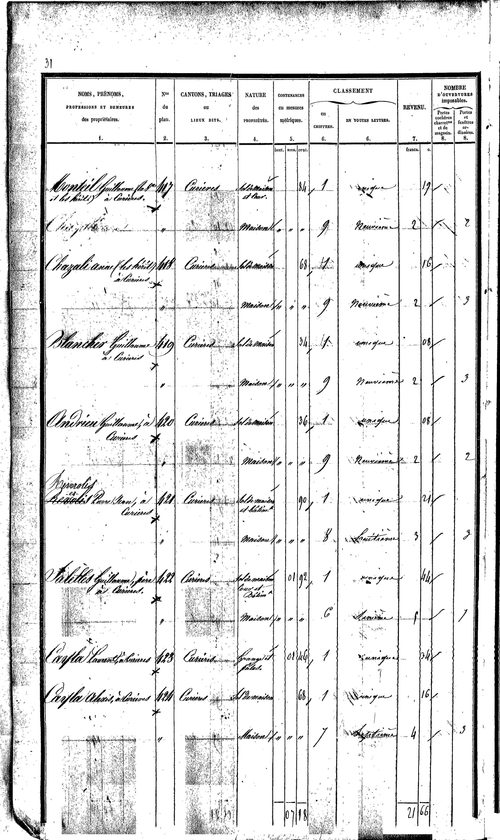 31
NOMS, PRÉNOMS,
PROFESSIONS ET DEMEURES
des propriétaires.
1.
Nos
du
plan.
2.
CANTONS, TRIAGES
ou
LIEUX DITS.
3.
NATURE
des
PROPRIÉTÉS.
4.
CONTENANCES
en mesures
métriques.
5.
hect. ares. cent.
CLASSEMENT
en
CHIFFRES.
6.
EN TOUTES LETTRES.
6.
REVENU.
7.
francs. c.
NOMBRE
D'OUVERTURES
imposables.
Portes
cochères
charret.res
et de
magasin.
8.
Portes
et
fenêtres
ordinaires.
8.
Monteil Guillaume 417 Curieres Sol de maison 84 1 unique 19
à Curieres. et Cour
" Maison " " " 9 Neuvième 2 2
Chazali anne (les hérit.) 418 Curieres Sol de maison 68 1 unique 16
à Curieres
" Maison " " " 9 Neuvième 2 3
Blancher Guillaume 419 Curieres Sol de maison 34 1 unique 08
à Curieres
" Maison " " " 9 Neuvième 2 3
Andrieu Guillaume, à 420 Curieres Sol de maison 36 1 unique 08
Curieres
" Maison " " " 9 Neuvième 2 2
Pierre Jean, à 421 Curieres Sol de maison 90 1 unique 21
Curieres et bâtim.t
" Maison " " " 8 huitième 3 3
Guillaume, père 422 Curieres Sol de maison 01 92 1 unique 44
à Curieres. Cour et
bâtim.t
" Maison " " " 6 Sixième 1
Cayla Laurent, à Curieres 423 Curieres Grange et 01 46 1 unique 34
Cayla Alexis, à Curieres 424 Curieres Sol de maison 68 1 unique 16
" Maison " " " 7 Septième 4 3
07 18 21 66